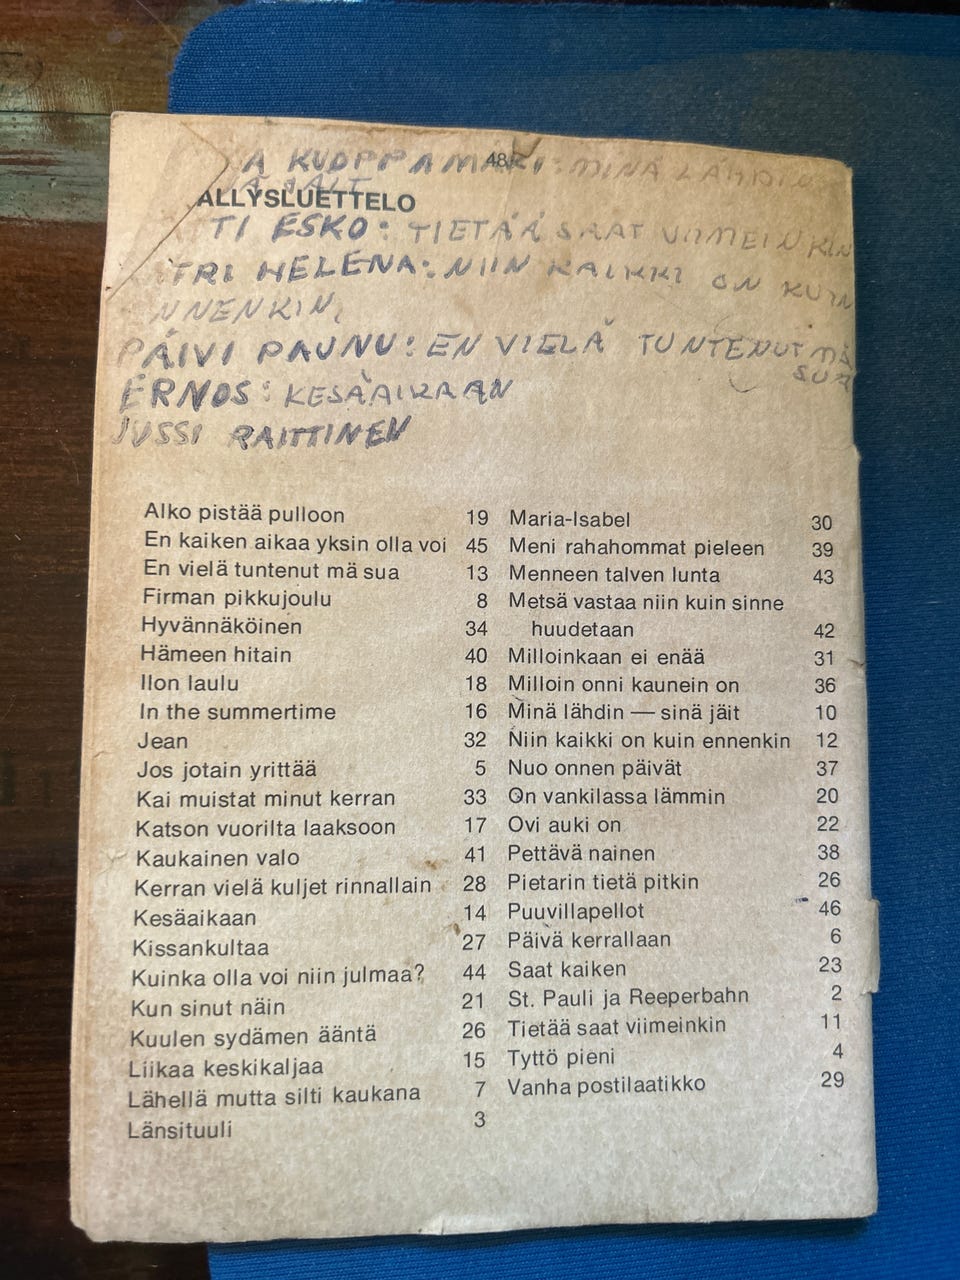 A KUOPPAMÄKI: MINÄ LÄHDIN
48
ÄLLYSLUETTELO
TI ESKO: TIETÄÄ SAAT VIIMEINKIN
TRI HELENA: NIIN KAIKKI ON KUIN
NNENKIN,
PÄIVI PAUNU: EN VIELÄ TUNTENUT MÄ
SUA
ERNOS: KESÄAIKAAN
JUSSI RAITTINEN
Alko pistää pulloon 19
En kaiken aikaa yksin olla voi 45
En vielä tuntenut mä sua 13
Firman pikkujoulu 8
Hyvännäköinen 34
Hämeen hitain 40
Ilon laulu 18
In the summertime 16
Jean 32
Jos jotain yrittää 5
Kai muistat minut kerran 33
Katson vuorilta laaksoon 17
Kaukainen valo 41
Kerran vielä kuljet rinnallain 28
Kesäaikaan 14
Kissankultaa 27
Kuinka olla voi niin julmaa? 44
Kun sinut näin 21
Kuulen sydämen ääntä 26
Liikaa keskikaljaa 15
Lähellä mutta silti kaukana 7
Länsituuli 3
Maria-Isabel 30
Meni rahahommat pieleen 39
Menneen talven lunta 43
Metsä vastaa niin kuin sinne
huudetaan 42
Milloinkaan ei enää 31
Milloin onni kaunein on 36
Minä lähdin — sinä jäit 10
Niin kaikki on kuin ennenkin 12
Nuo onnen päivät 37
On vankilassa lämmin 20
Ovi auki on 22
Pettävä nainen 38
Pietarin tietä pitkin 26
Puuvillapellot 46
Päivä kerrallaan 6
Saat kaiken 23
St. Pauli ja Reeperbahn 2
Tietää saat viimeinkin 11
Tyttö pieni 4
Vanha postilaatikko 29